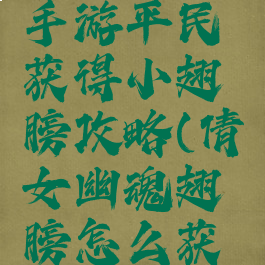 手游平民
获得小翅
膀攻略(倩
女幽魂翅
膀怎么获